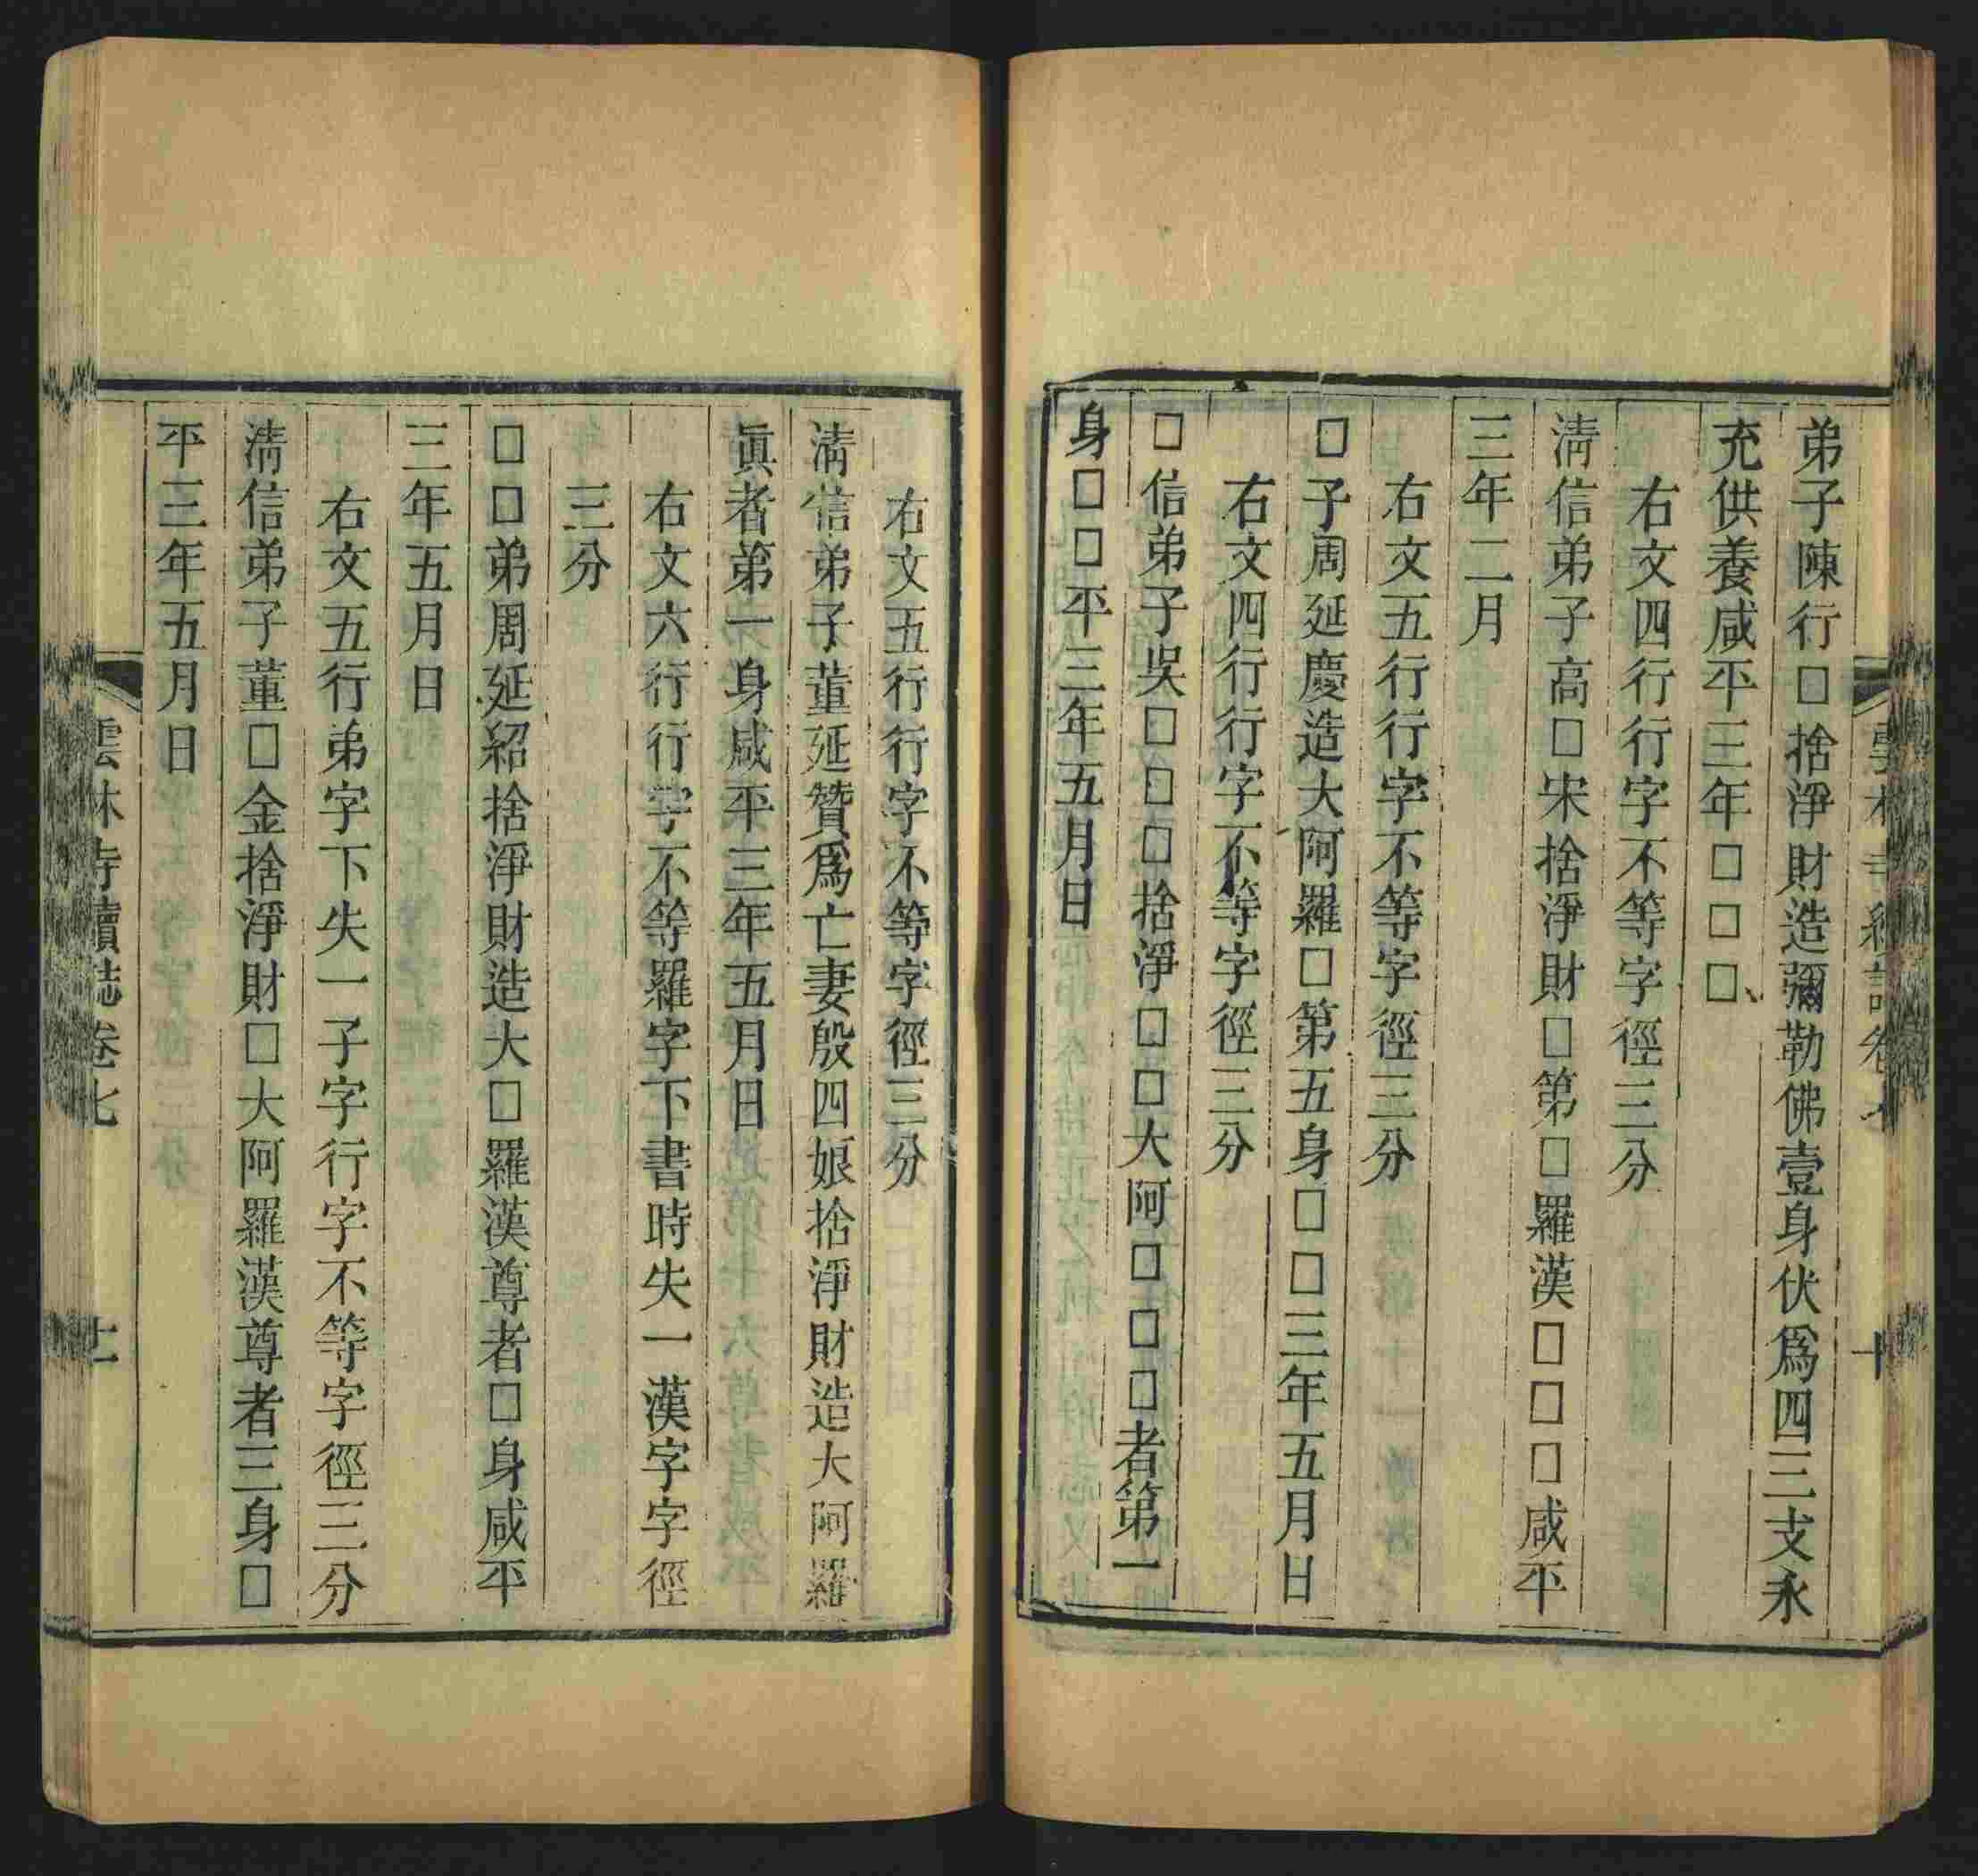 弟子陳行□捨淨財造彌勒佛壹身伏爲四三支永
充供養咸平三年□□□
右文四行行字不等字徑三分
清信弟子高□宋捨淨財□第□羅漢□□□咸平
三年二月
右文五行行字不等字徑三分
□子周延慶造大阿羅□第五身□□三年五月日
右文四行行字不等字徑三分
□信弟子吳□□□捨淨□□大阿□□□者第一
身□□平三年五月日
右文五行行字不等字徑三分
清信弟子董延贊爲亡妻殷四娘捨淨財造大阿羅
眞者第一身咸平三年五月日
右文六行行字不等羅字下書時失一漢字字徑
三分
□□弟周延紹捨淨財造大□羅漢尊者□身咸平
三年五月日
右文五行弟字下失一子字行字不等字徑三分
清信弟子董□金捨淨財□大阿羅漢尊者三身□
平三年五月日
雲林寺續誌卷七
十一